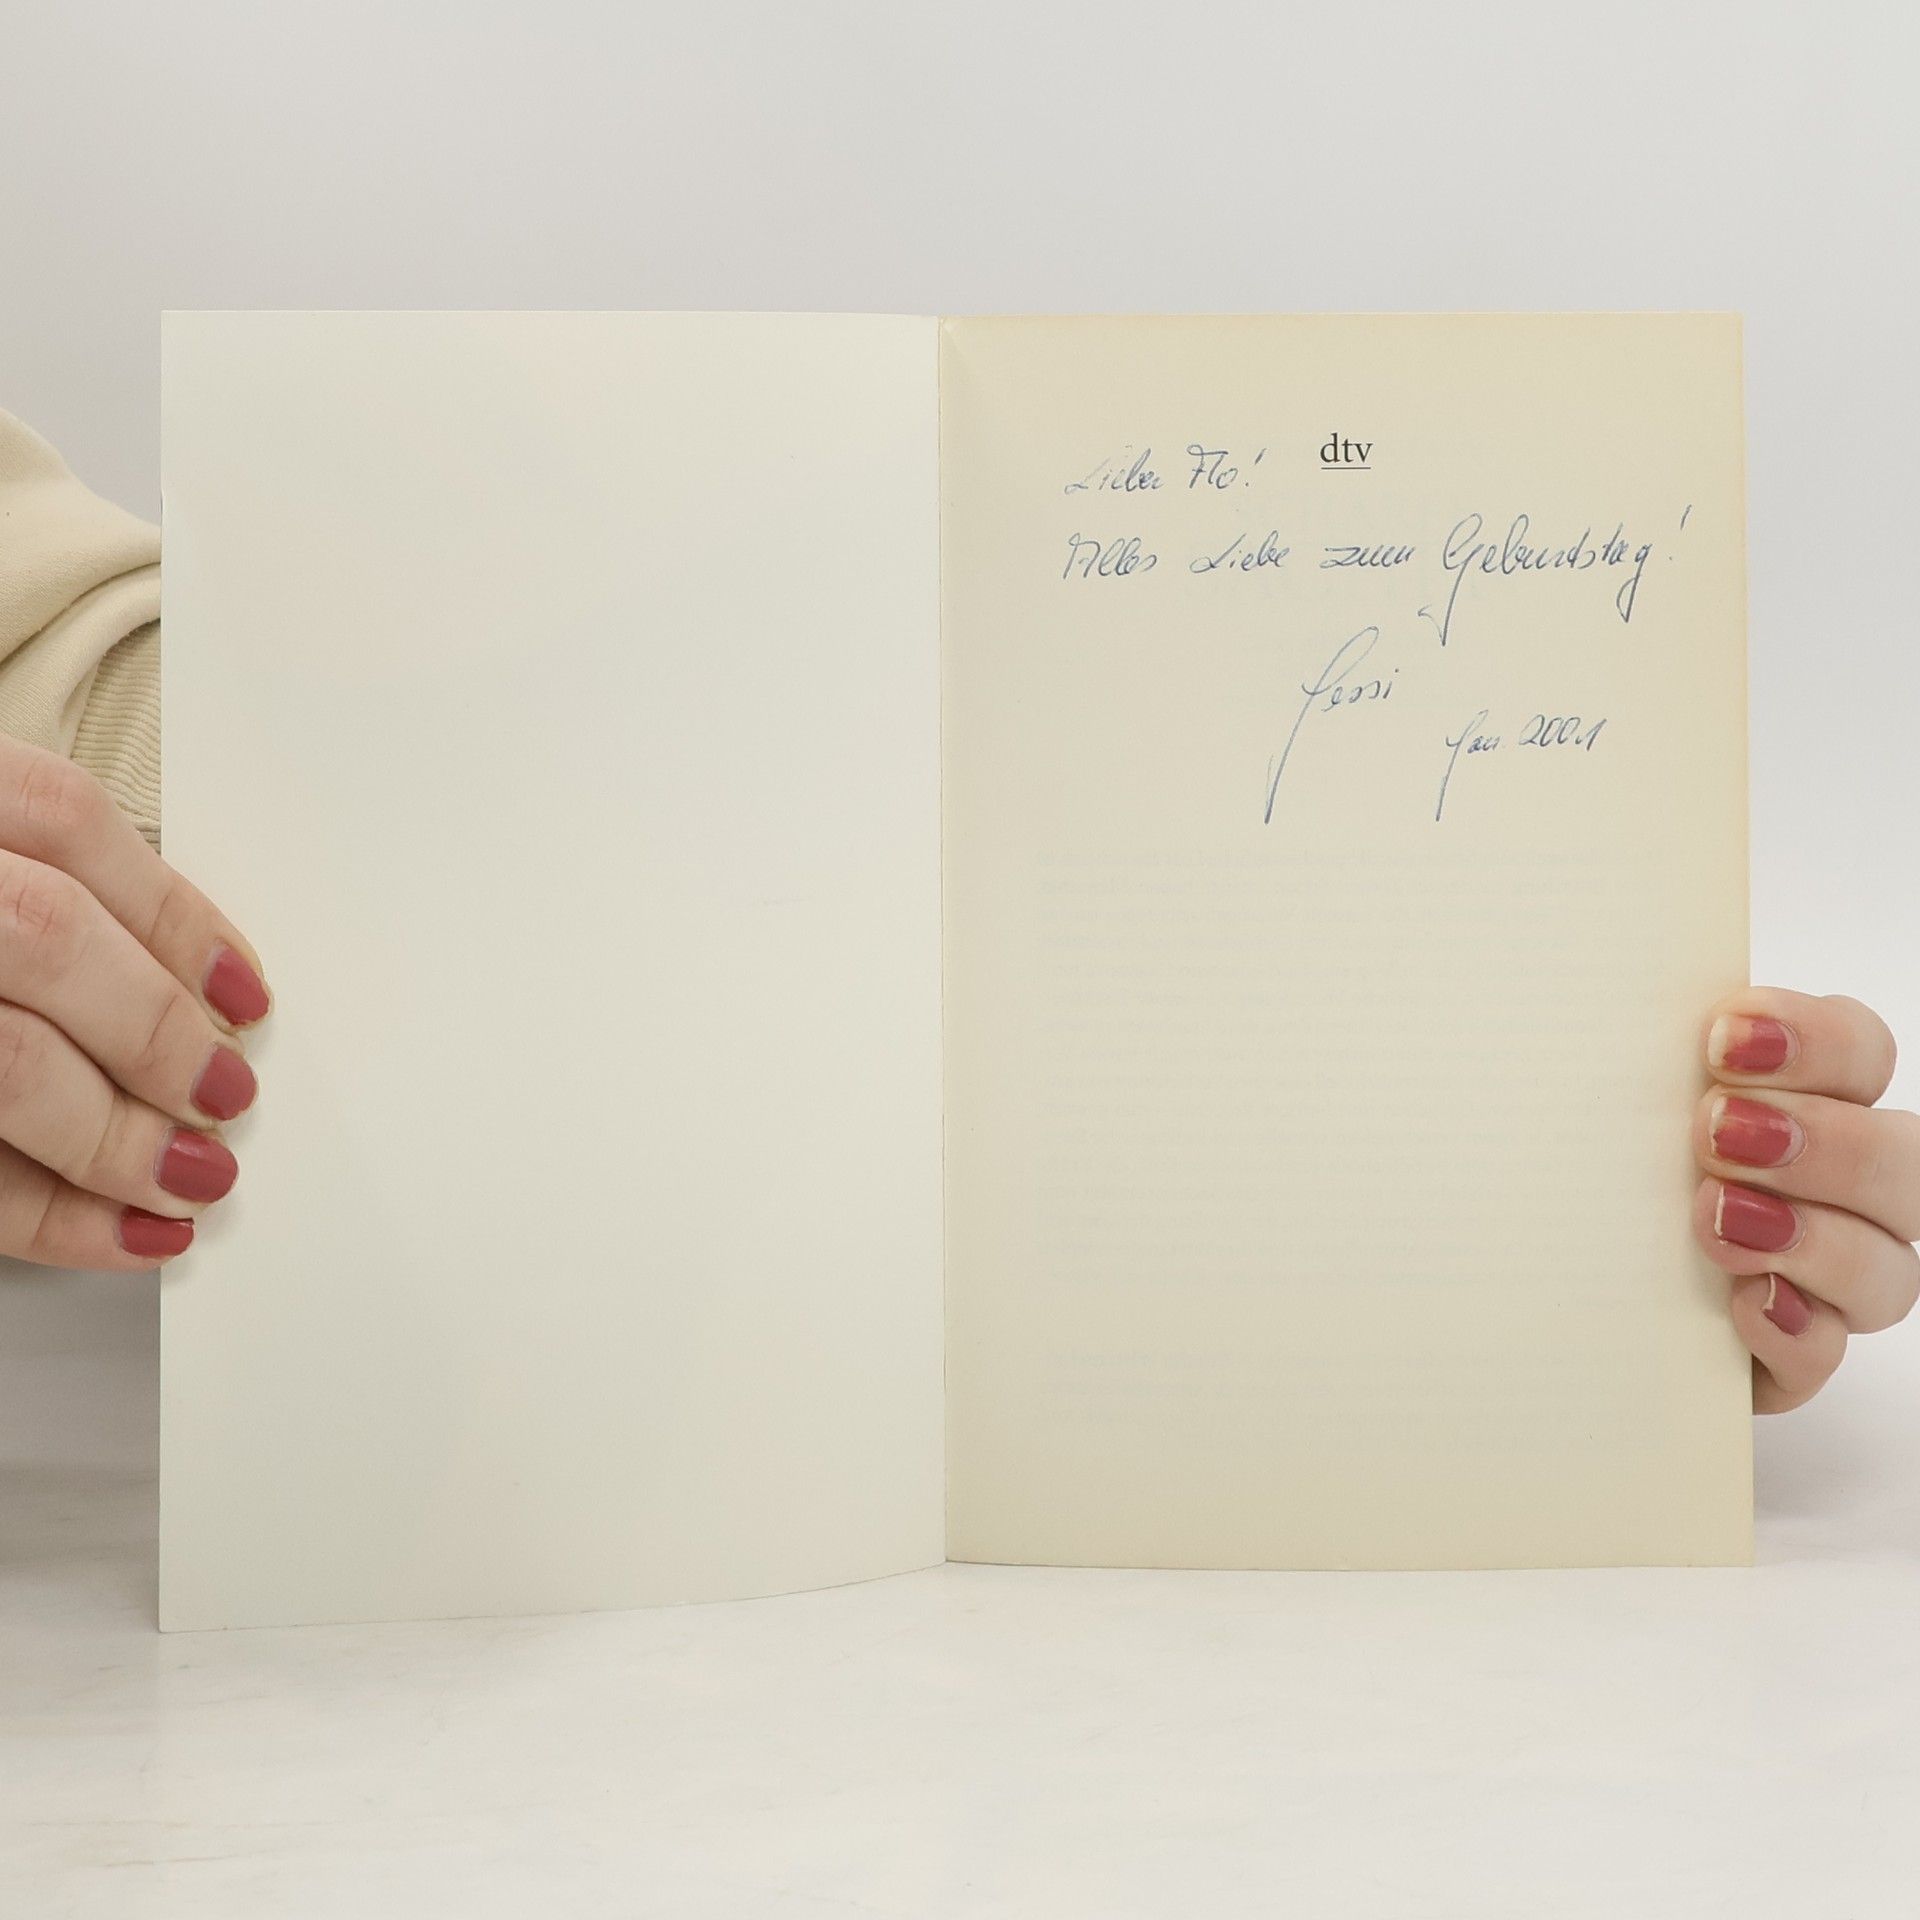 dtv
Lieber Flo!
Alles Liebe zum Geburtstag!
Jessi
Jan. 2001